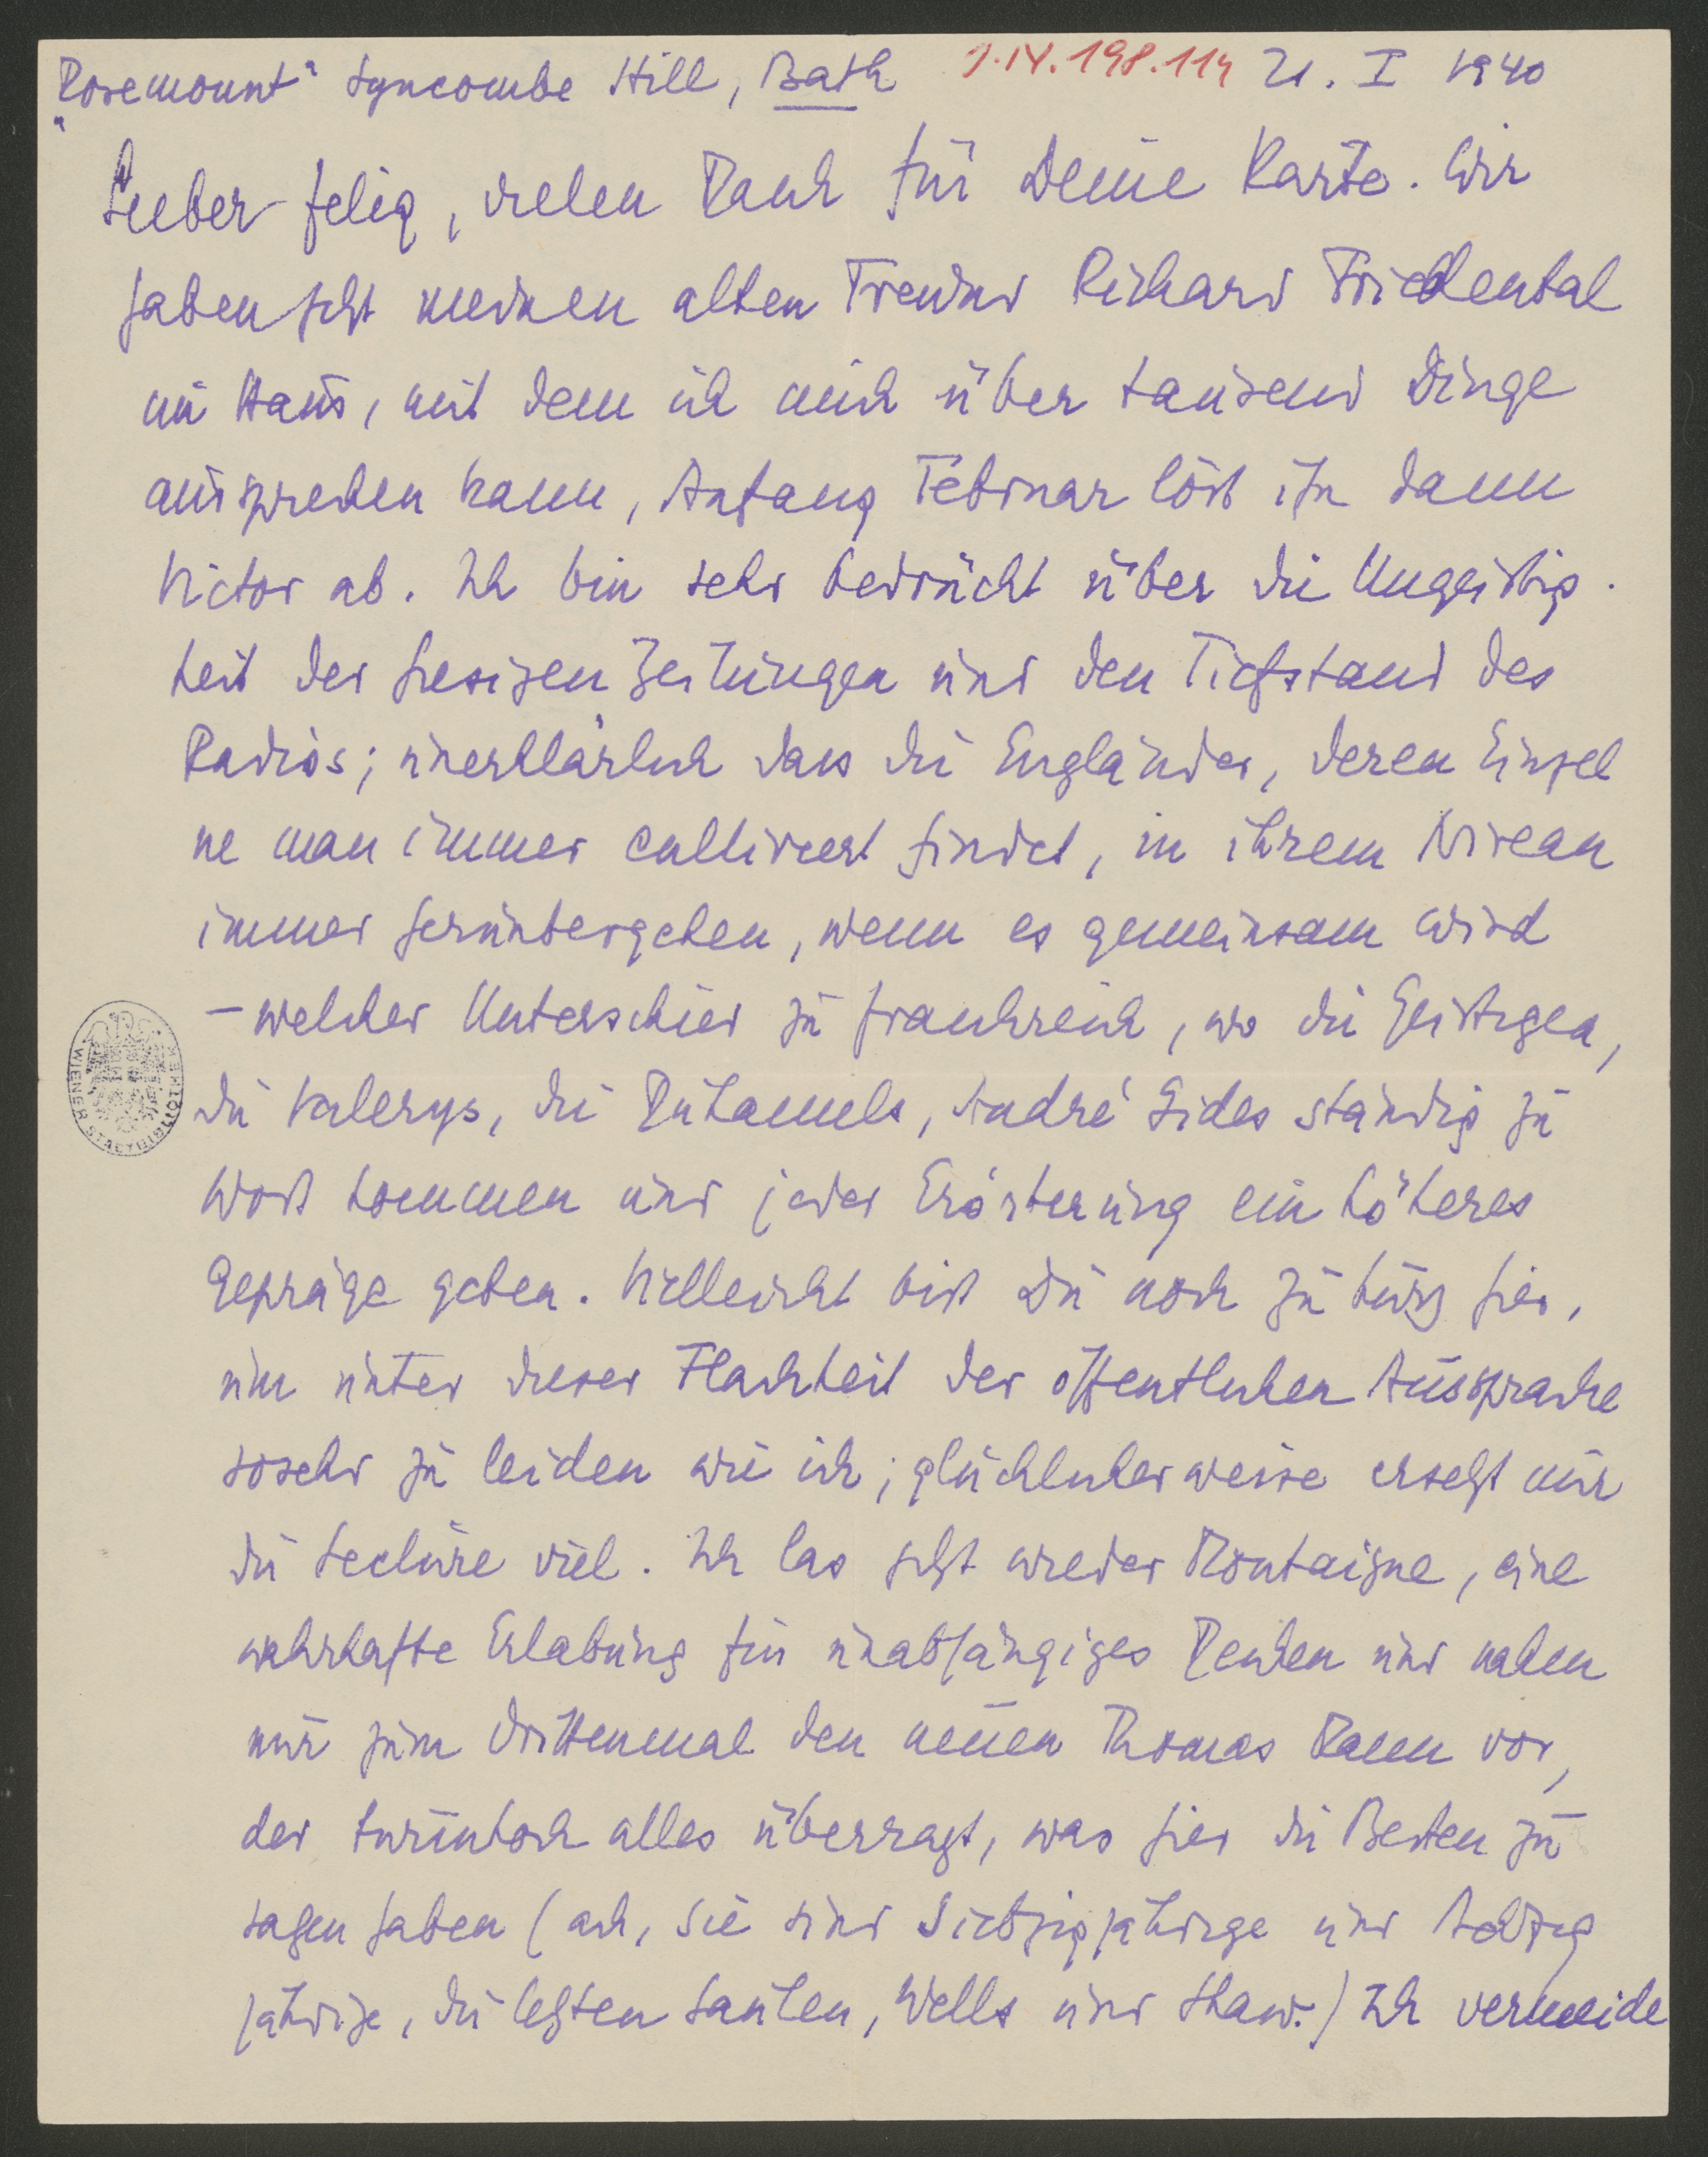 „Rosemount“ Lyncombe Hill, Bath J.N. 198.114 21. I 1940
Lieber Felix, vielen Dank für Deine Karte. Wir
haben jetzt meinen alten Freund Richard Friedental
im Haus, mit dem ich mich über tausend Dinge
aussprechen kann, Anfang Februar löst ihn dann
Victor ab. Ich bin sehr bedrückt über die Ungeistig-
keit der hiesigen Zeitungen und den Tiefstand des
Radios; unerklärlich dass die Engländer, deren Einzel
ne man immer cultiviert findet, in ihrem Niveau
immer heruntergehen, wenn es gemeinsam wird
– welcher Unterschied zu Frankreich, wo die Geistigen,
die Valerys, die Duhamels, André Gides ständig zu
Wort kommen und jeder Erörterung ein höheres
Gepräge geben. Vielleicht bist Du noch zu kurz hier,
um unter dieser Flachheit der öffentlichen Aussprache
sosehr zu leiden wie ich; glücklicherweise ersetzt mir
die Lectüre viel. Ich las jetzt wieder Montaigne, eine
wahrhafte Erlabung für unabhängiges Denken und nahm
mir zum drittenmal den neuen Thomas Mann vor,
der turmhoch alles überragt, was hier die Besten zu
sagen haben (ach, sie sind Siebzigjährige und Achtzig
jährige, die letzten Säulen, Wells und Shaw.) Ich vermeide
WIENER STADTBIBLIOTHEK